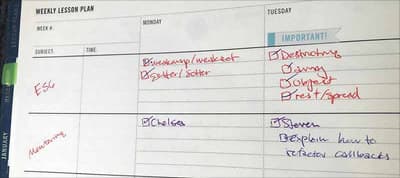 WEEKLY LESSON PLAN
WEEK #:
MONDAY
TUESDAY
IMPORTANT!
SUBJECT:
TIME:
ES6
weakmap/weakset
Getter/Setter
Destructuring
Array
Object
rest/spread
Mentoring
Chelsea
Steven
Explain how to
refactor callbacks
JANUARY